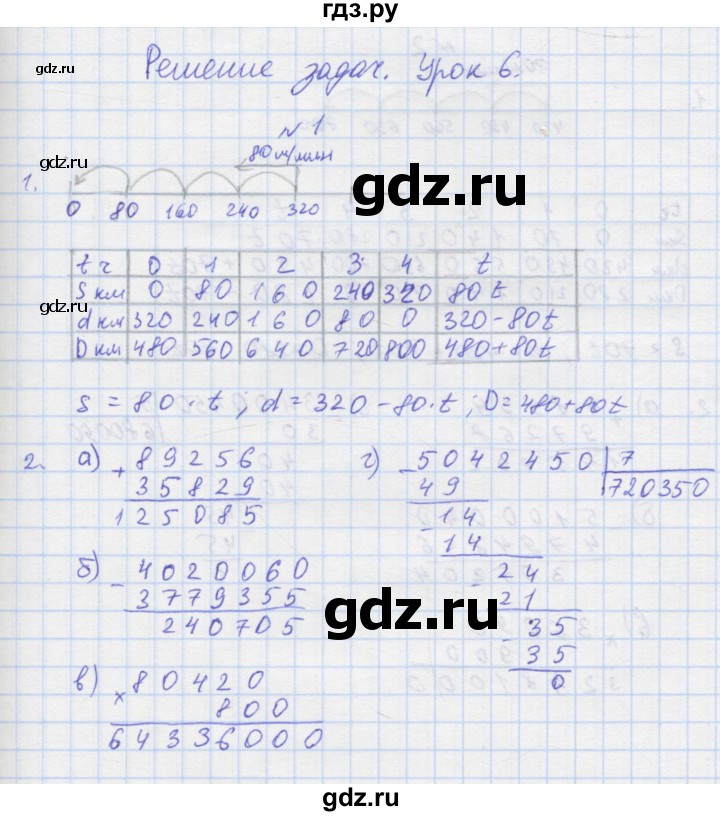 гдз.ру
gdz.ru
gdz.ru
Решение задач. Урок 6.
№1
80 м/мин
1.
0 80 160 240 320
gdz.ru
t ч 0 1 2 3 4 t
S км 0 80 160 240 320 80t
gdz.ru gdz.ru
d км 320 240 160 80 0 320-80t
D км 480 560 640 720 800 480+80t
s = 80·t, d = 320-80·t; D=480+80t
2. а) + 89256 г) - 5042450 | 7
35829 49 720350
125085 - 14
14
б) - 4020060 - 24
3779355 21
240705 - 35
35
0
gdz.ru
в) × 80420
800
64336000
gdz.ru
gdz.ru
gdz.ru